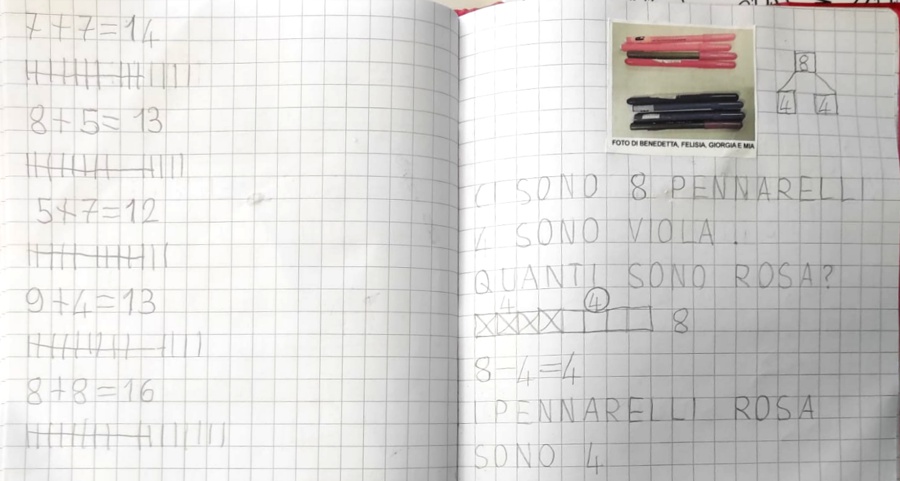 7+7=14
8+5=13
5+7=12
9+4=13
8+8=16
FOTO DI BENEDETTA, FELISIA, GIORGIA E MIA
8
4 4
CI SONO 8 PENNARELLI
4 SONO VIOLA.
QUANTI SONO ROSA?
4 4
8
8-4=4
I PENNARELLI ROSA
SONO 4